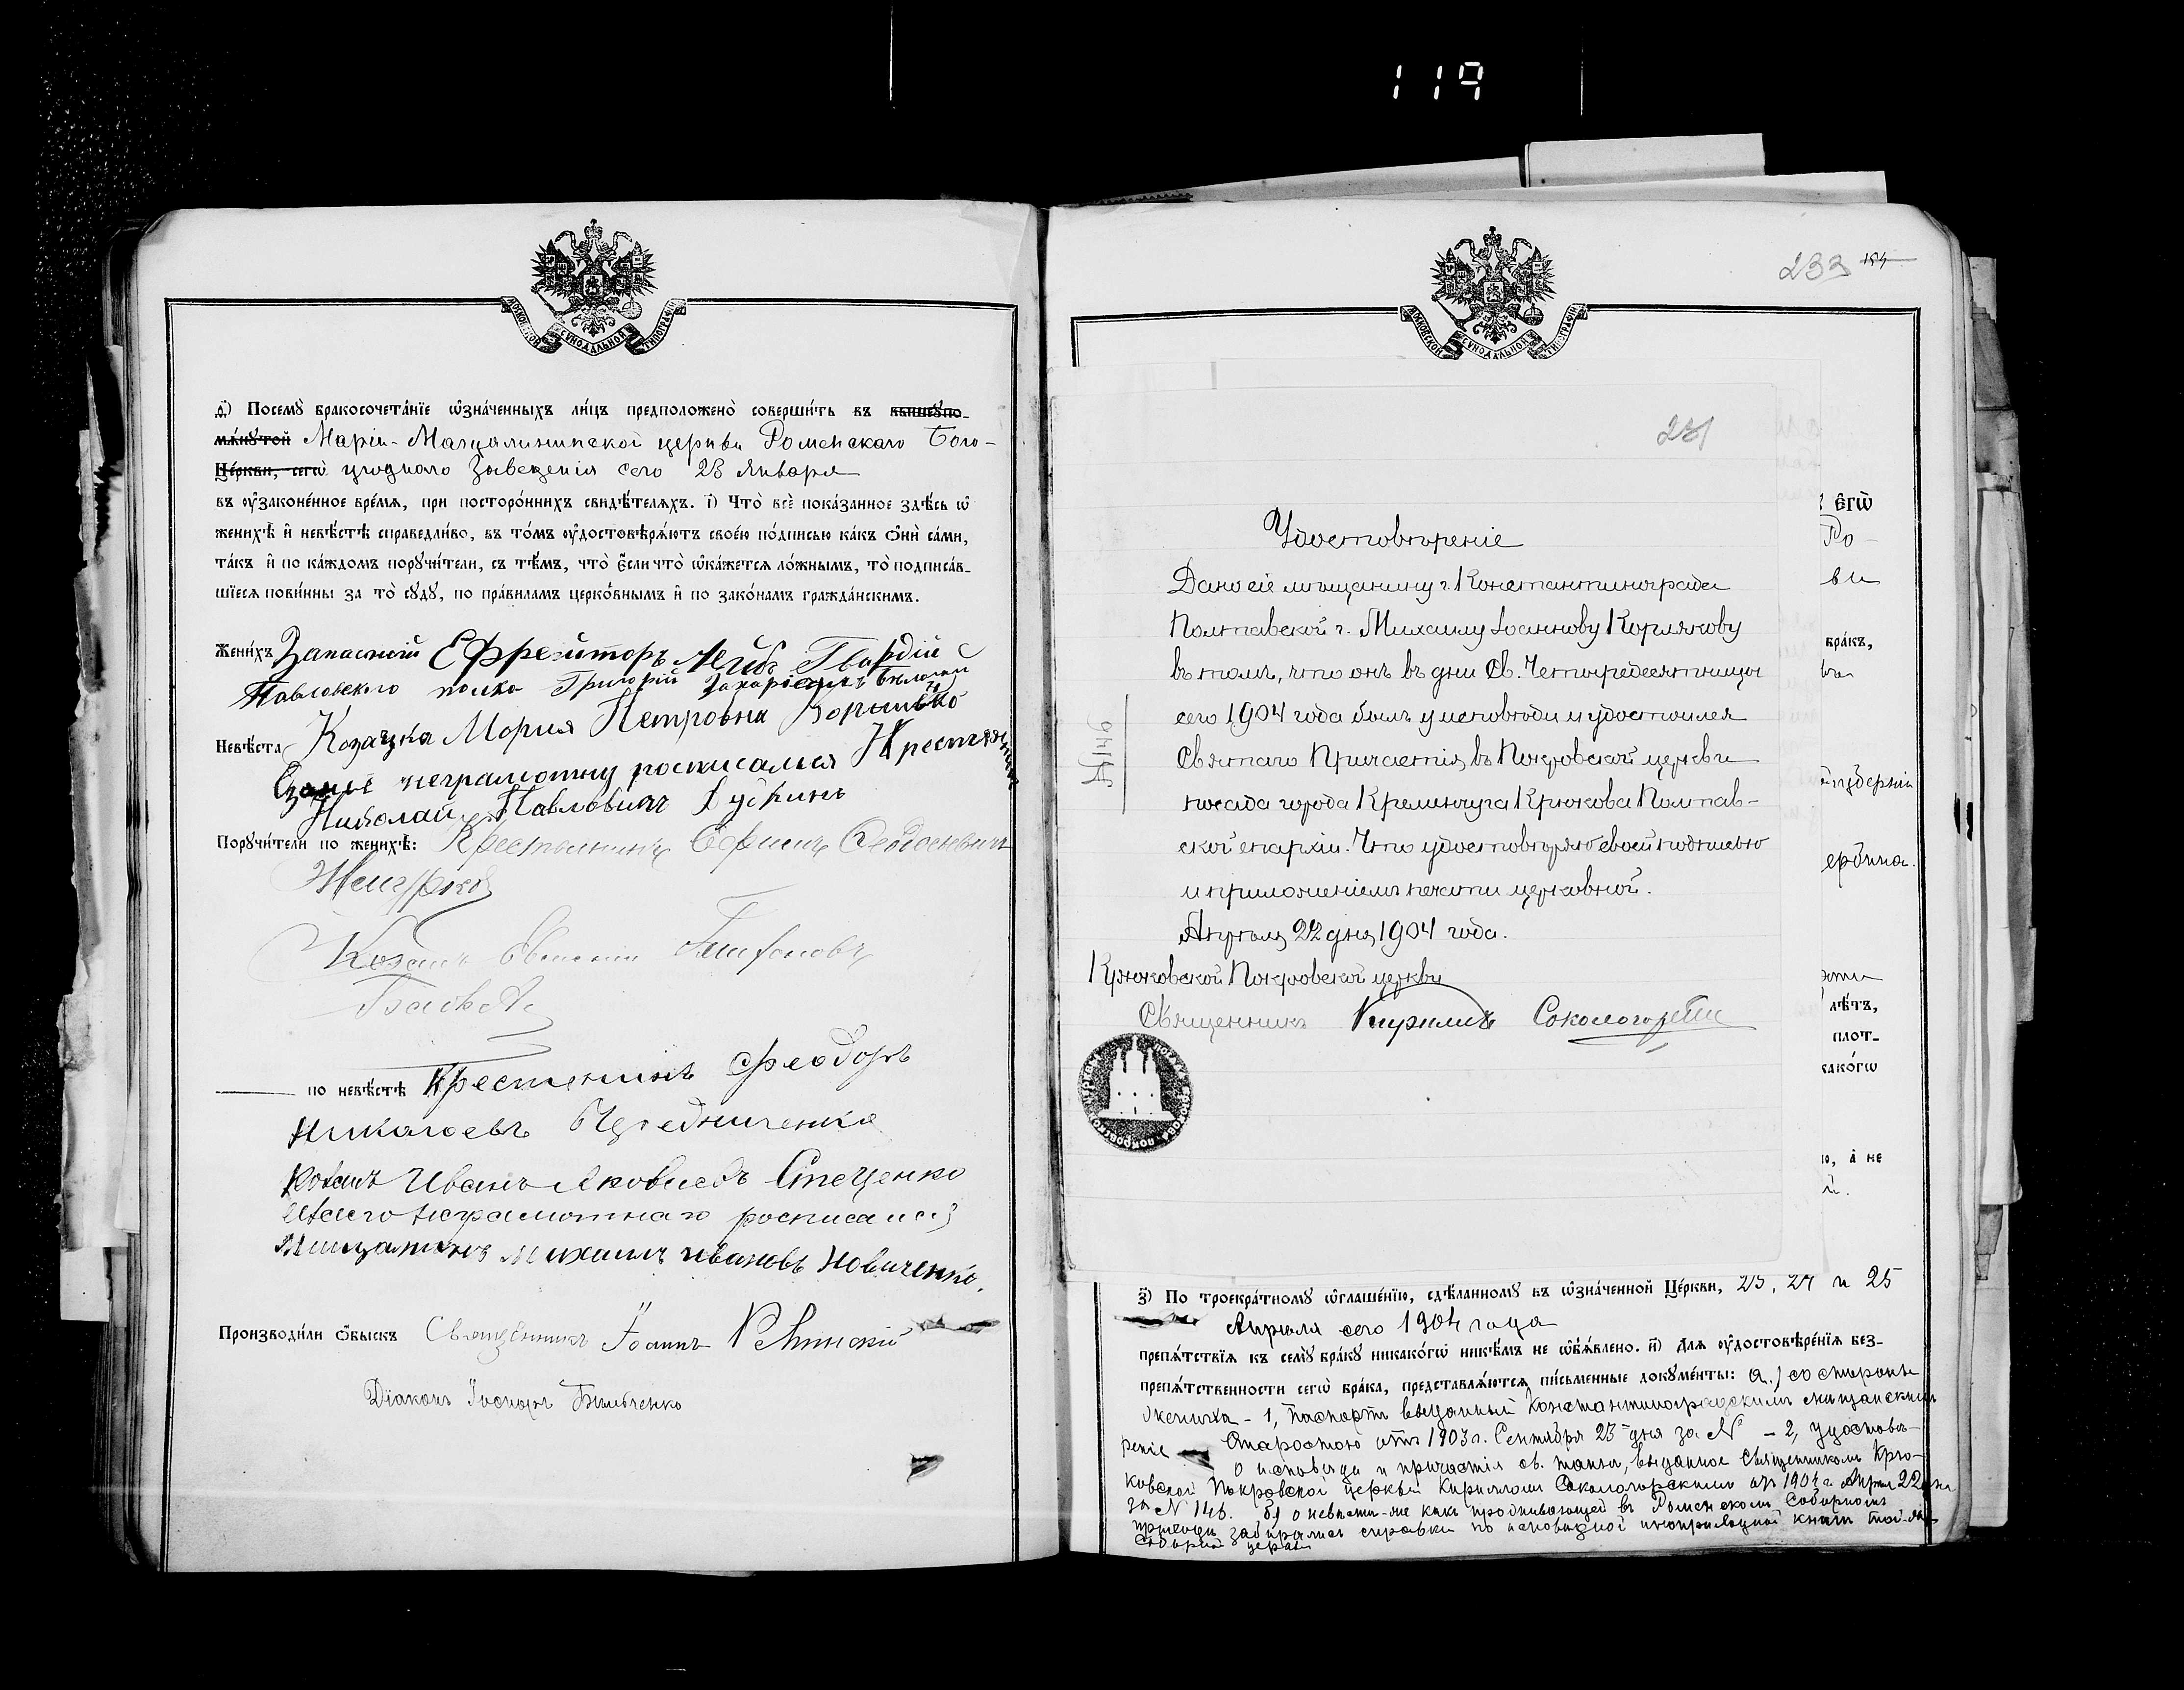 119
МОСКОВСКОЙ СѴНОДАЛЬНОЙ ТИПОГРАФІИ
ѳ҃) Посемꙋ̀ бракосочета́нїе ѡ҆зна́ченныхъ ли́цъ предположено̀ соверши́ть въ вышеꙋпо-
мѧ́нꙋтой Маріи-Магдалининской церкви Роменскаго Бого-
Це́ркви, сегѡ̀ угоднаго Заведенія сего 28 Января
въ ᲂу҆зако́ненное вре́мѧ, при посторо́ннихъ свидѣ́телѧхъ. і҃) Что̀ всѐ пока́занное здѣ́сь ѡ҆
женихѣ̀ и҆ невѣ́стѣ справедли́во, въ то́мъ ᲂу҆достовѣрѧ́ютъ свое́ю по́дписью ка́къ ѻ҆нѝ са́ми,
та́къ и҆ по ка́ждомъ порꙋчи́тели, съ тѣ́мъ, что̀ є҆́сли что̀ ѡ҆ка́жетсѧ ло́жнымъ, то̀ подписа́в-
шїесѧ пови́нны за то̀ сꙋдꙋ̀, по пра́виламъ церко́внымъ и҆ по зако́намъ гражда́нскимъ.
Жени́хъ Запасный Ефрейторъ Лейбъ Гвардіи
Павловскаго полка Григорій
Невѣ́ста Козачка Мария Петровна
неграмотну росписался
Николай Павловичъ
Порꙋчи́тели по женихѣ̀: Крестьянинъ Ефимъ
Козакъ
по невѣ́стѣ Крестенинъ Феодоръ
Николаевъ Чередниченка
Козакъ Иванъ Яковлевъ Стеценко
неграмотнаго росписался
Мищанинъ Михаилъ Ивановъ Новиченко.
Производи́ли ѻ҆́быскъ Священникъ Іоаннъ
Діаконъ
233 154
МОСКОВСКОЙ СѴНОДАЛЬНОЙ ТИПОГРАФІИ
231
Удостовѣреніе
Дано сіе мѣщанину г. Константинограда
Полтавской г. Михаилу Іоаннову Корлякову
въ томъ, что онъ въ дни Св. Четыредесятницы
сего 1904 года былъ у исповѣди и удостоился
Святаго Причастія, въ Покровской церкви
посада города Кременчуга Крюкова Полтав-
ской епархіи. Что удостовѣряю своей подписью
и приложеніемъ печати церковной.
Апрѣля 22 дня, 1904 года.
Крюковской Покровской церкви
Священникъ Кириллъ Сокологорскій
№ 146
є҆гѡ̀
Ро-
ви
бра́къ,
губерніи
лѣ́тъ,
плот-
како́гѡ
ю, а҆ не
з҃) По троекра́тномꙋ ѡ҆глаше́нїю, сдѣ́ланномꙋ въ ѡ҆зна́ченной Це́ркви, 23, 24 и 25
Апрѣля сего 1904 года
препѧ́тствїѧ къ семꙋ̀ бра́кꙋ никако́гѡ никѣ́мъ не ѡ҆б̾ѧ́влено. и҃) Длѧ ᲂу҆достовѣре́нїѧ без-
препѧ́тственности сегѡ̀ бра́ка, представлѧ́ютсѧ пи́сьменные докꙋме́нты: а.) со стороны
жениха - 1, паспортъ выданный Константиноградскимъ мѣщанскимъ
Старостою отъ 1903 г. Сентября 23 дня за № - 2, удостовѣ-
реніе о исповѣди и причастія св. таинъ, выданное Священникомъ Крю-
ковской Покровской церкви Кирилломъ Сокологорскимъ отъ 1904 г. Апрѣля 22 дня
за № 146. б) о невѣстѣ-же какъ проживающей въ Роменскомъ Соборномъ
приходѣ забирались справки по исповѣдной книги той-же
Соборной церкви